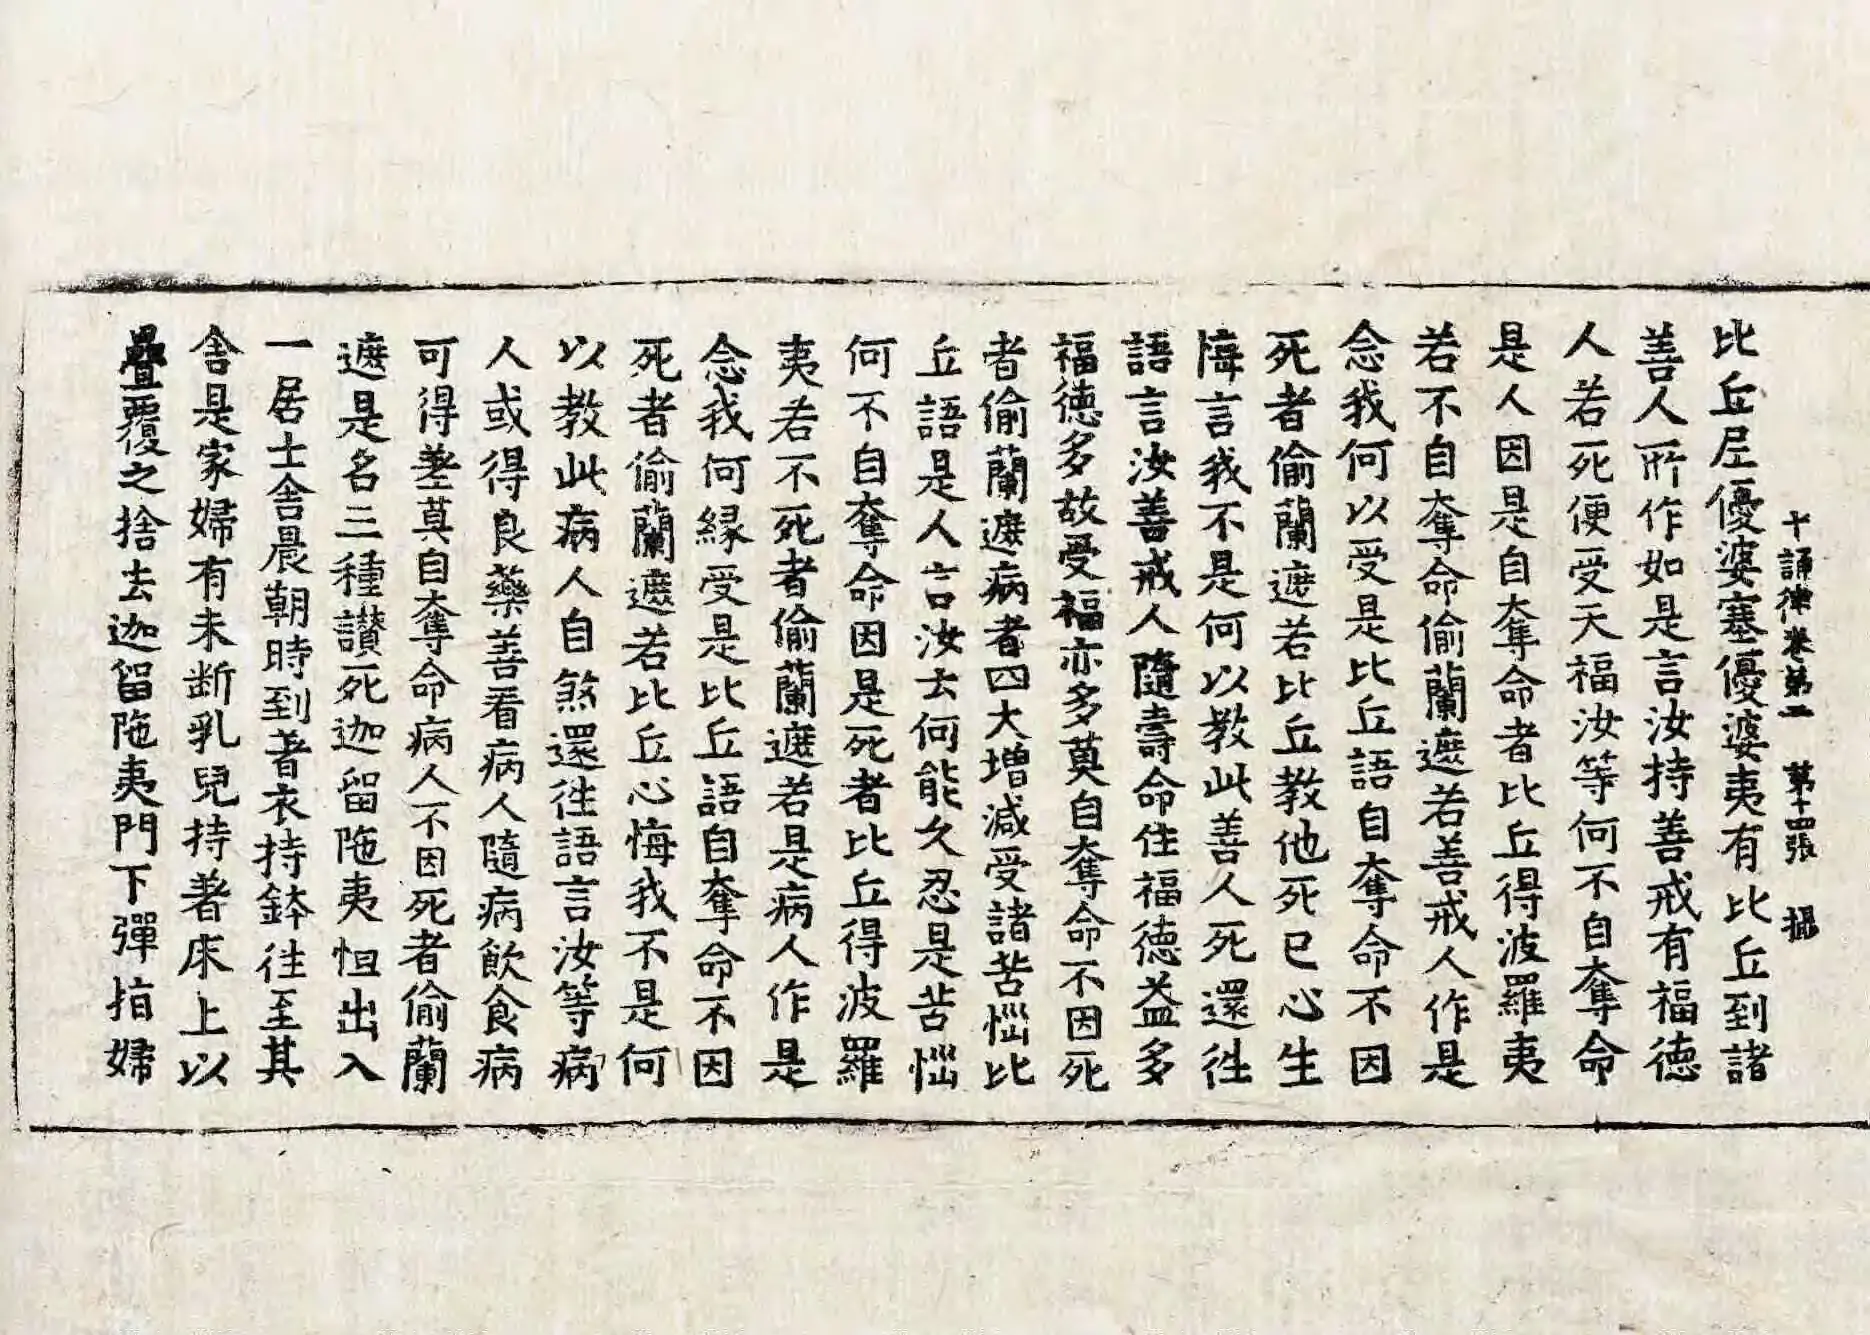 十誦律卷第二　第十四張　攝
比丘尼優婆塞優婆夷有比丘到諸
善人所作如是言汝持善戒有福德
人若死便受天福汝等何不自奪命
是人因是自奪命者比丘得波羅夷
若不自奪命偷蘭遮若善戒人作是
念我何以受是比丘語自奪命不因
死者偷蘭遮若比丘教他死已心生
悔言我不是何以教此善人死還往
語言汝善戒人隨壽命住福德益多
福德多故受福亦多莫自奪命不因死
者偷蘭遮病者四大增減受諸苦惱比
丘語是人言汝去何能久忍是苦惱
何不自奪命因是死者比丘得波羅
夷若不死者偷蘭遮若是病人作是
念我何緣受是比丘語自奪命不因
死者偷蘭遮若比丘心悔我不是何
以教此病人自煞還往語言汝等病
人或得良藥善看病人隨病飲食病
可得差莫自奪命病人不因死者偷蘭
遮是名三種讃死迦留陁夷怛出入
一居士舍晨朝時到著衣持鉢往至其
舍是家婦有未斷乳兒持著床上以
疊覆之捨去迦留陁夷門下彈指婦